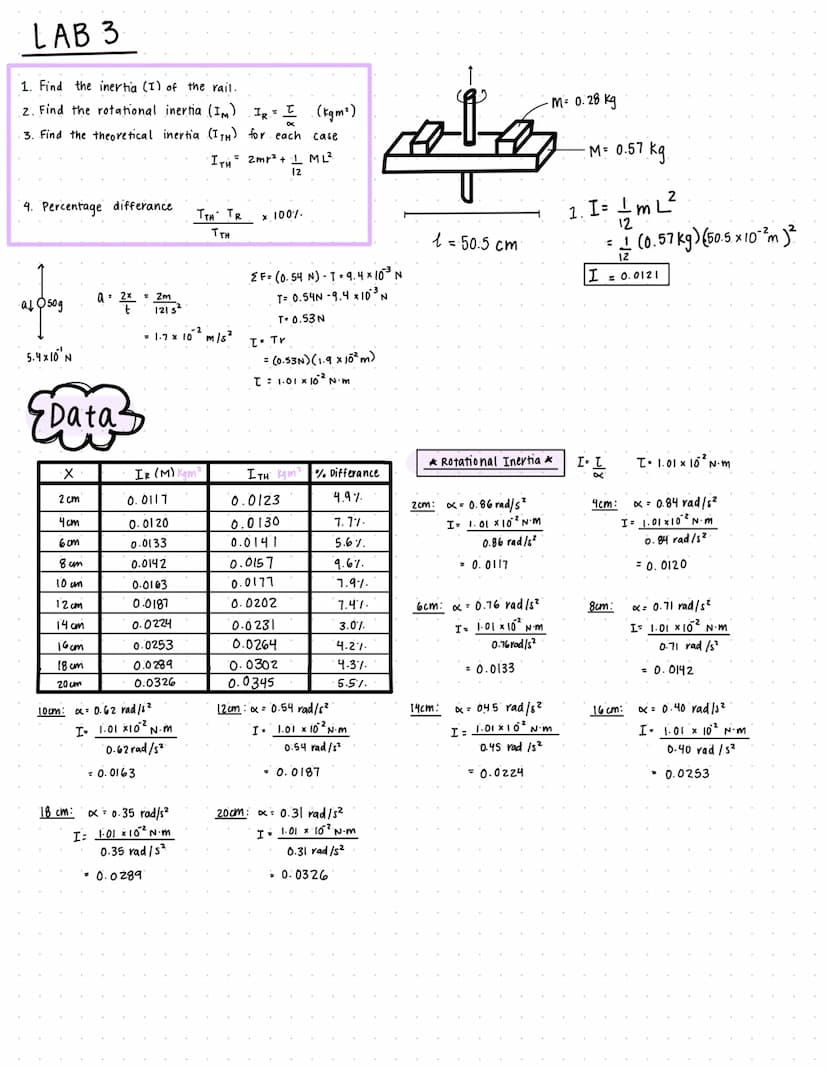 LAB 3
1. Find the inertia (I) of the rail.
2. Find the rotational inertia (I_M) I_R = τ/α (kgm²)
3. Find the theoretical inertia (I_TH) for each case
I_TH = 2mr² + 1/12 ML²
4. Percentage differance (T_TH - T_R)/T_TH × 100%
M= 0.28 kg
M= 0.57 kg
l = 50.5 cm
1. I = 1/12 m L²
= 1/12 (0.57kg)(50.5 × 10⁻² m)²
I = 0.0121
a↓ 50g
5.4×10⁻¹ N
a = 2x/t = 2m/121 s²
= 1.7 × 10⁻² m/s²
ΣF = (0.54 N) - T = 9.4 × 10⁻³ N
T = 0.54N - 9.4 × 10⁻³ N
T = 0.53N
τ = Tr
= (0.53N)(1.9 × 10⁻² m)
τ = 1.01 × 10⁻² N·m
Data
X I_R (M) kgm² I_TH kgm² % Differance
2cm 0.0117 0.0123 4.9%
4cm 0.0120 0.0130 7.7%
6cm 0.0133 0.0141 5.6%
8cm 0.0142 0.0157 9.6%
10cm 0.0163 0.0177 7.9%
12cm 0.0187 0.0202 7.4%
14cm 0.0224 0.0231 3.0%
16cm 0.0253 0.0264 4.2%
18cm 0.0289 0.0302 4.3%
20cm 0.0326 0.0345 5.5%
* Rotational Inertia * I = τ/α τ = 1.01 × 10⁻² N·m
2cm: α = 0.86 rad/s²
I = 1.01 × 10⁻² N·M
0.86 rad/s²
= 0.0117
4cm: α = 0.84 rad/s²
I = 1.01×10⁻² N·m
0.84 rad/s²
= 0.0120
6cm: α = 0.76 rad/s²
I = 1.01 × 10⁻² N·m
0.76rad/s²
= 0.0133
8cm: α = 0.71 rad/s²
I = 1.01 × 10⁻² N·m
0.71 rad/s²
= 0.0142
10cm: α = 0.62 rad/s²
I = 1.01 × 10⁻² N·m
0.62rad/s²
= 0.0163
12cm: α = 0.54 rad/s²
I = 1.01 × 10⁻² N·m
0.54 rad/s²
= 0.0187
14cm: α = 0.45 rad/s²
I = 1.01 × 10⁻² N·m
0.45 rad/s²
= 0.0224
16cm: α = 0.40 rad/s²
I = 1.01 × 10² N·m
0.40 rad/s²
= 0.0253
18 cm: α = 0.35 rad/s²
I = 1.01 × 10⁻² N·m
0.35 rad/s²
= 0.0289
20cm: α = 0.31 rad/s²
I = 1.01 × 10⁻² N·m
0.31 rad/s²
= 0.0326